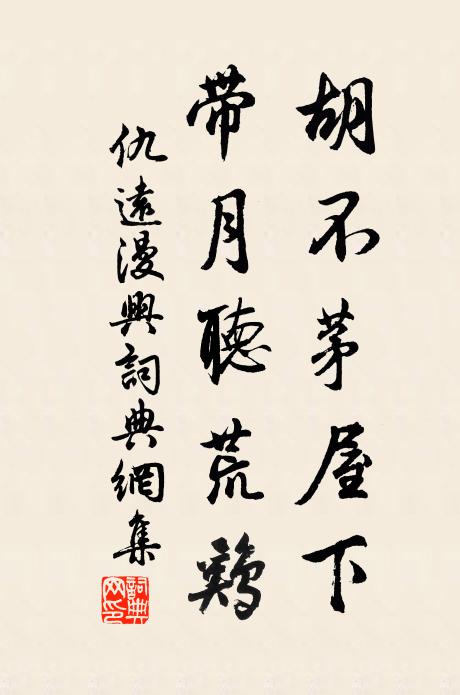 胡不茅屋下
帶月聽荒鷄
仇遠漫興詞典網集
詞典網印